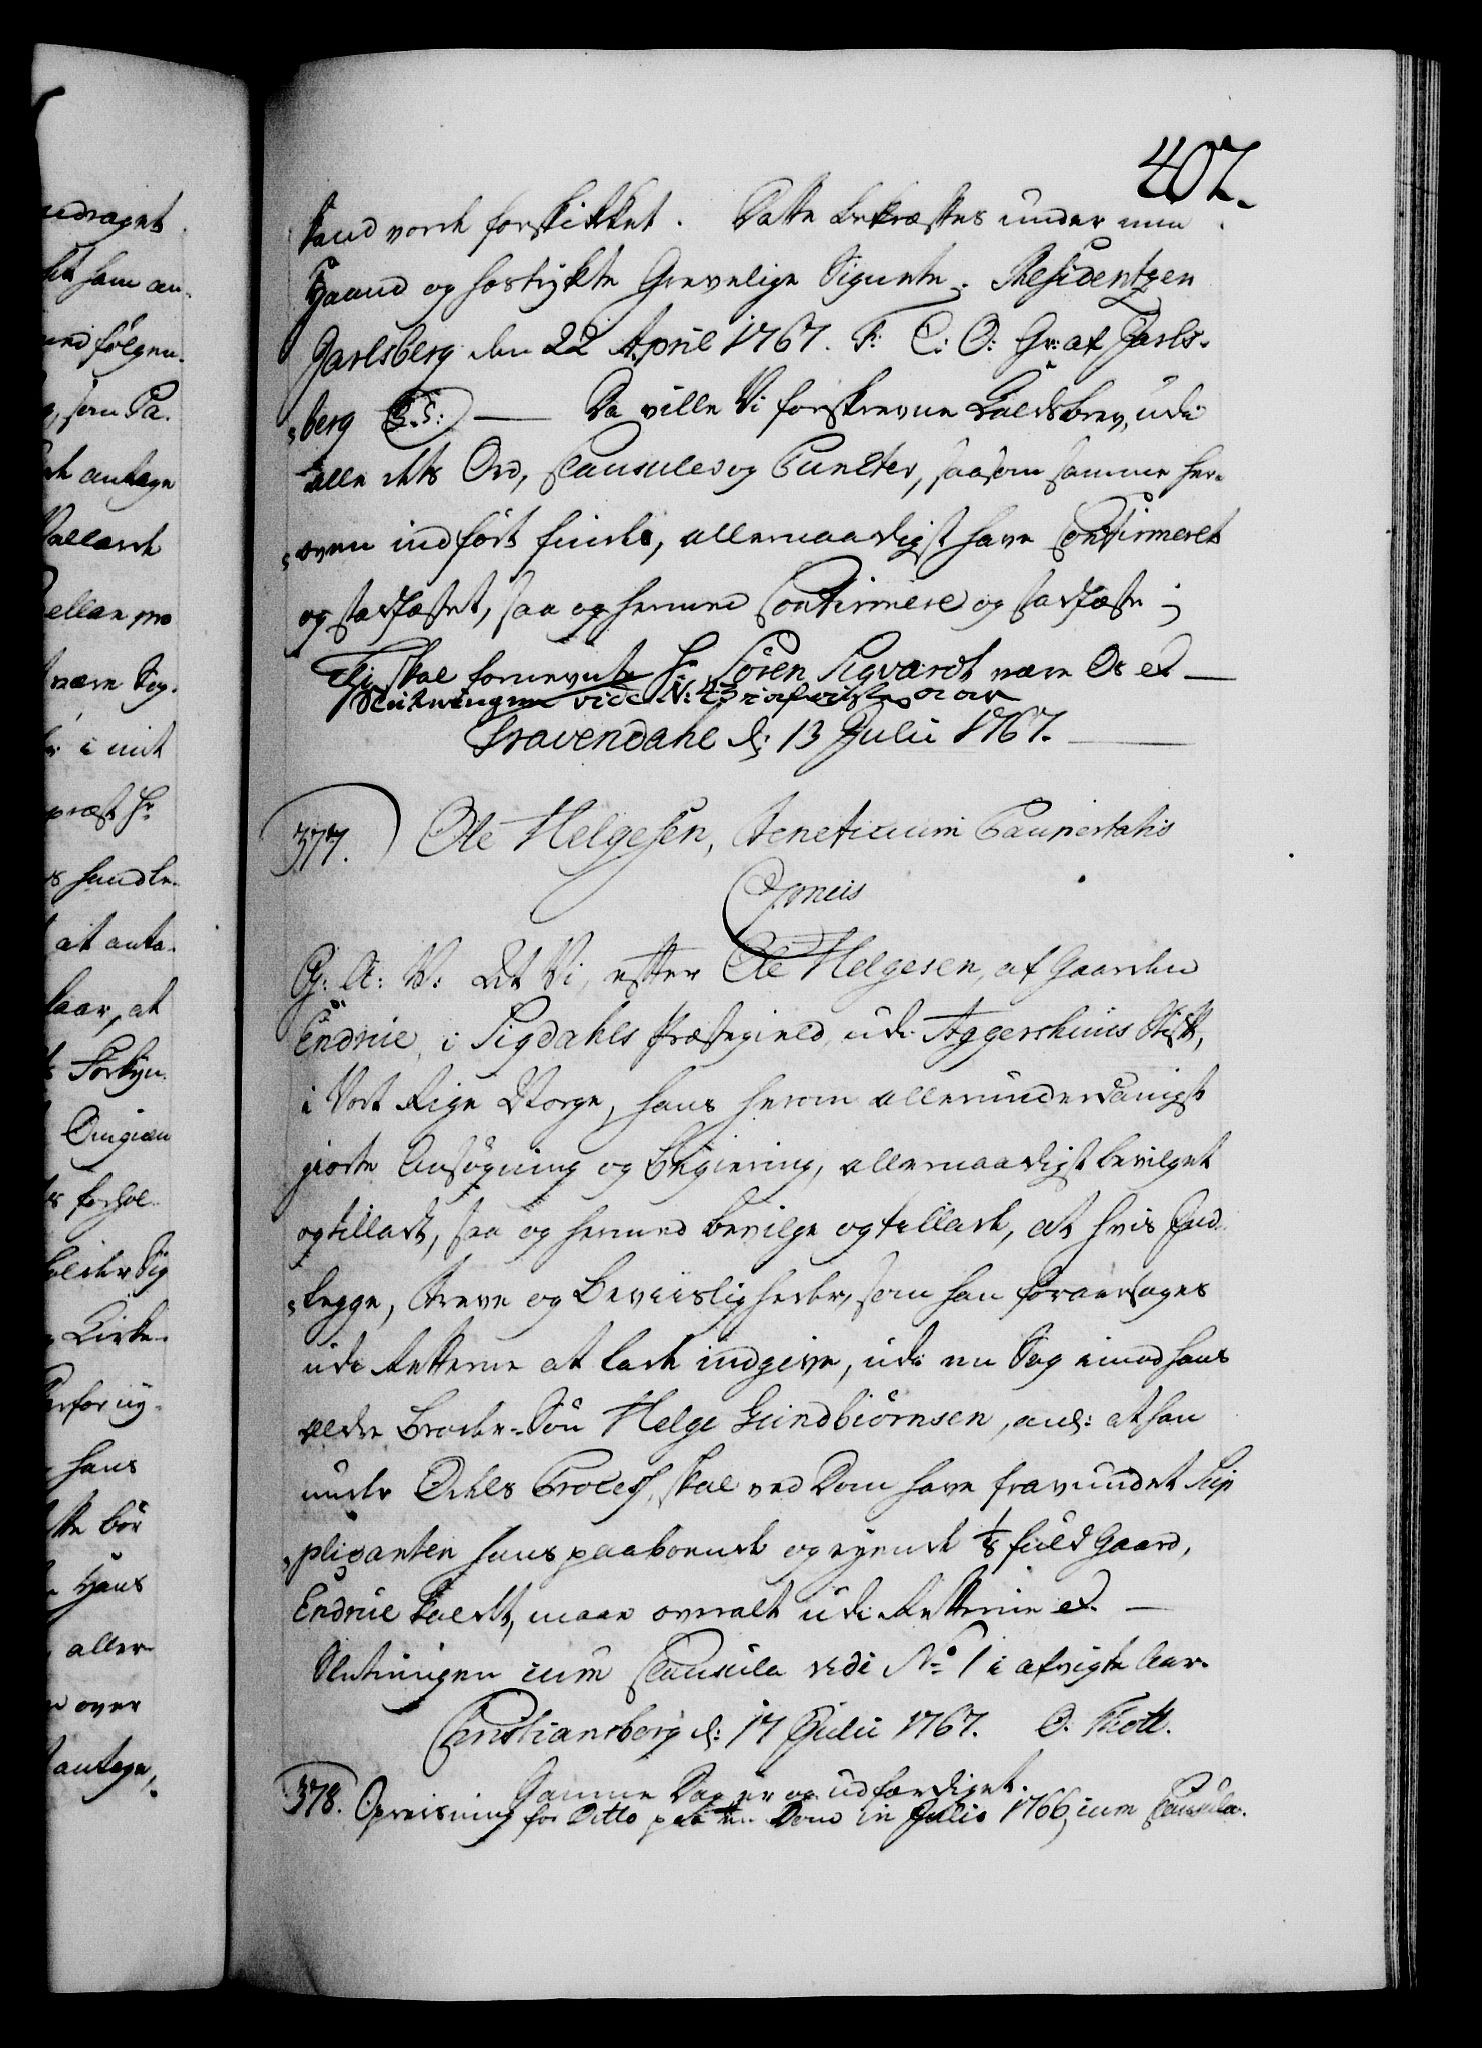 407.
stand vorde forskikket. Dette bekræftes under min
Haand og hostrykte Grevelige Signete. Residentzen
Jarlsberg den 22 April 1767. F: C: O: Gr: af Jarls-
berg (L.S:) — Da ville Vi forskrevne Kaldsbrev, udi
alle dets Ord, Clausuler og Puncter, saasom samme her-
oven indført findes, allernaadigst have Confirmeret
og stadfæstet, saa og hermed Confirmere og stadfæste;
Thi skal fornevnte Hr Sören Sigvardt være Os et —
Slutningen vide N: 43 i afvigte Aar
Travendahl d: 13 Julii 1767.
377. Ole Helgesen, Beneficium Paupertatis
Gratis
C: A: V: At Vi, efter Ole Helgesen, af Gaarden
Endrüe, i Sigdahls Præstegield, udi Aggershuus Stift,
i Vort Rige Norge, hans herom allerunderdanigst
giorte Ansøgning og Begiering, allernaadigst bevilget
og tilladt, saa og hermed bevilge og tillade, at hvis Ind-
legge, Breve og Beviisligheder, som han foraarsages
udi Retterne at lade indgive, udi en Sag imod hans
ældre Broder-Søn Helge Gundbiörnsen, anl: at han
under Odels Process, skal ved Dom have fravundet Sup-
plicanten hans paaboende og eyende 1/8 fuld Gaard,
Endrüe kaldet, maae overalt udi Retterne et. —
Slutningen cum Clausula vide No 1 i afvigte Aar.
Christiansborg d: 17 Julii 1767. O. Thott.
Samme Dag er og udfærdiget.
378. Opreisning for Ditto paa en Dom in Julio 1766, cum Clausula.